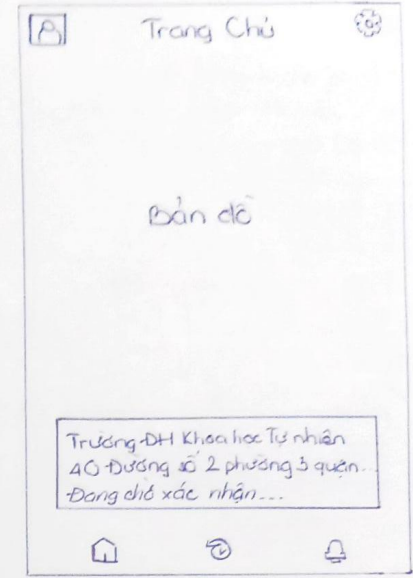 Trang Chủ
Bản đồ
Trường ĐH Khoa học Tự nhiên
40 Đường số 2 phường 3 quận...
Đang chờ xác nhận...